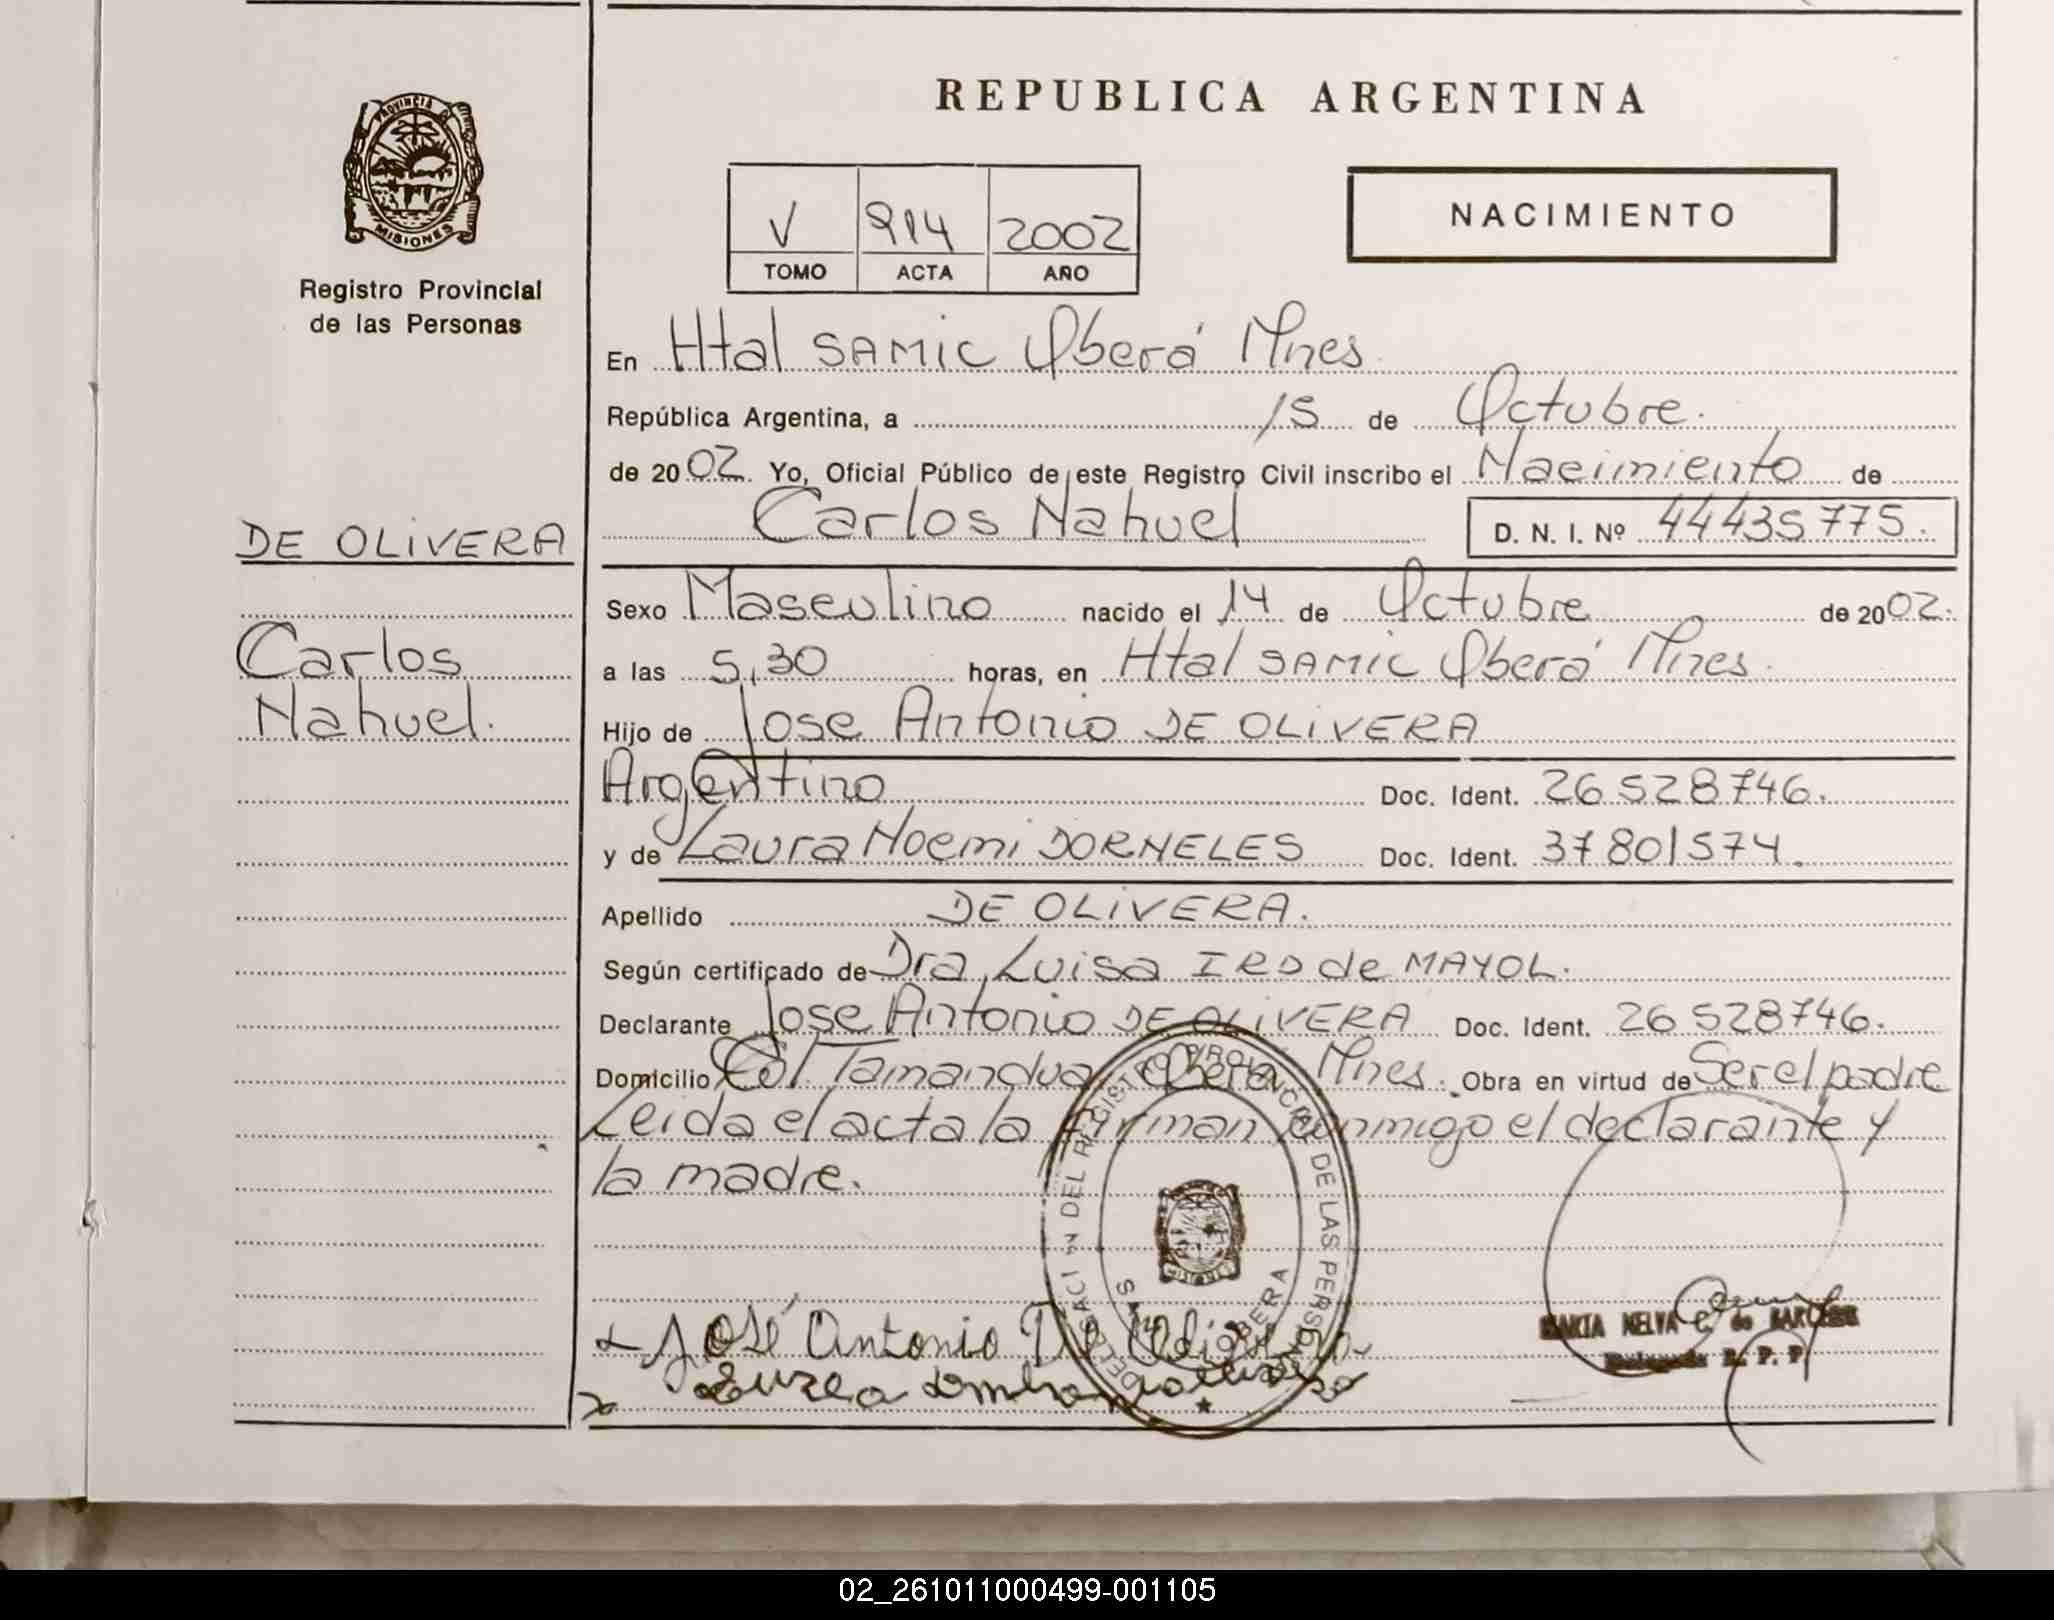 REPUBLICA ARGENTINA
PROVINCIA
MISIONES
Registro Provincial
de las Personas
NACIMIENTO
V 914 2002
TOMO ACTA AÑO
En Htal SAMIC Oberá Mnes
República Argentina, a 15 de Octubre.
de 2002. Yo, Oficial Público de este Registro Civil inscribo el Nacimiento de
Carlos Nahuel D. N. I. Nº 44435775.
DE OLIVERA
Carlos
Nahuel.
Sexo Masculino nacido el 14 de Octubre de 2002.
a las 5,30 horas, en Htal SAMIC Oberá Mnes.
Hijo de Jose Antonio DE OLIVERA
Argentino Doc. Ident. 26528746.
y de Laura Noemi DORNELES Doc. Ident. 37801574.
Apellido DE OLIVERA.
Según certificado de Dra Luisa de MAYOL.
Declarante Jose Antonio DE OLIVERA Doc. Ident. 26528746.
Domicilio Col. Tamandua Oberá Mnes. Obra en virtud de Ser el padre
Leida el acta la firman conmigo el declarante y
la madre.
DEL REGISTRO PROVINCIAL DE LAS PERSONAS
OBERA
José Antonio De
MARTA NELVA C. de
R. P. P.
02_261011000499-001105